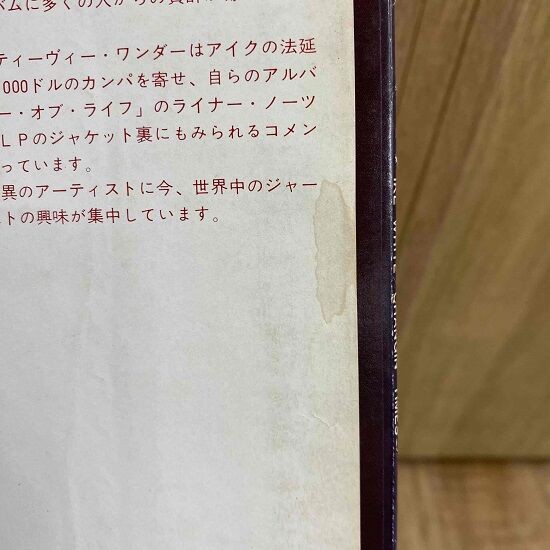 バムに多くの人からの賛辞が
ティーヴィー・ワンダーはアイクの法延
000ドルのカンパを寄せ、自らのアルバ
ー・オブ・ライフ」のライナー・ノーツ
LPのジャケット裏にもみられるコメン
っています。
異のアーティストに今、世界中のジャー
ストの興味が集中しています。
IKE WHITE CHANGIN' TIMES